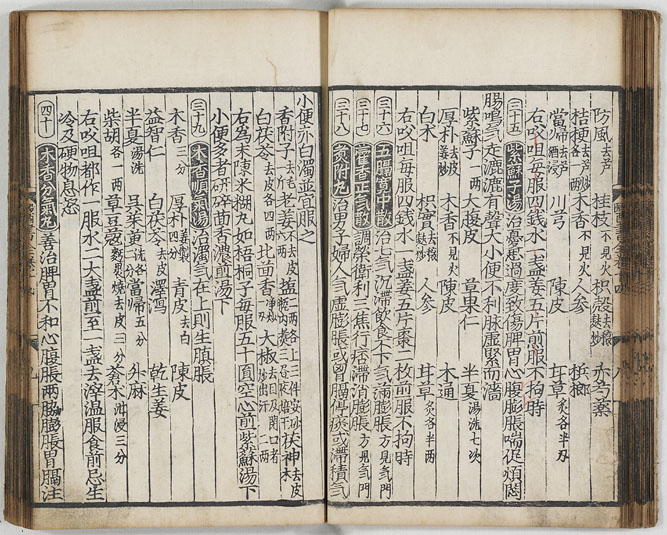 防風去芦 桂枝不見火 枳殼去穣麩炒 赤芍薬
桔梗去芦炒 木香不見火 人参 梹榔
當帰去芦酒浸 川芎 陳皮 甘草炙各半刄
右㕮咀毎服四銭水一盞姜五片煎服不拘時
三十五 紫蘇子湯 治憂思過度致傷脾胃心腹膨脹喘促煩悶
腸鳴气走漉漉有聲大小便不利脉虚緊而濇
紫蘇子一両 大腹皮 草果仁 半夏湯洗七次
厚朴去皮姜炒 木香不見火 陳皮 木通
白朮 枳實去穣麩炒 人参 甘草炙各半両
右㕮咀毎服四銭水一盞姜五片棗二枚煎服不拘時
三十六 五膈寛中散 治七气沉滞飲食不下气满膨脹方見气門
三十七 藿香正气散 調榮衛利三焦行痞滞消膨脹方見气門
三十八 附丸 治男子婦人气虚膨脹或胷膈停痰或滞積气
小便赤白濁並宜服之
香附子去毛 老姜去皮 塩二両 茯神去皮
白茯苓去皮各四両 大椒去目及閉口者炒出汗二両
右為末陳米糊丸如梧桐子毎服五十圓空心煎紫蘇湯下
小便多者研茴香濃煎湯下
三十九 木香順气湯 治濁气在上則生䐜脹
木香三分 厚朴四分姜製 青皮去白 陳皮
益智仁 白茯苓去皮 澤瀉 乾生姜
半夏湯洗 呉茱萸湯洗各二分 當帰五分 升麻
柴胡各一両 草豆蔲麪褁煨去皮三分 蒼朮泔浸三分
右㕮咀都作一服水二大盞煎至一盞去滓温服食前忌生
冷及硬物息怒
四十 木香分气丸 善治脾胃不和心腹脹両脇膨脹胃膈注